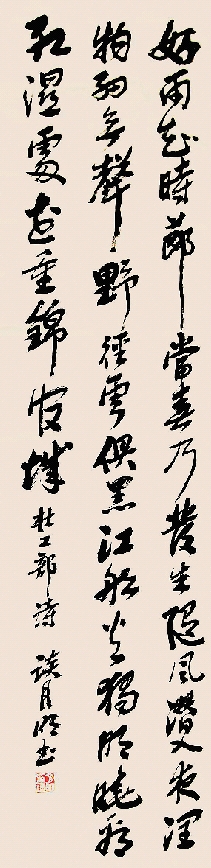 好雨知時節當春乃發生隨風潛入夜潤
物細無聲野徑雲俱黑江船火獨明曉看
紅濕處花重錦官城 杜工部詩 月 書